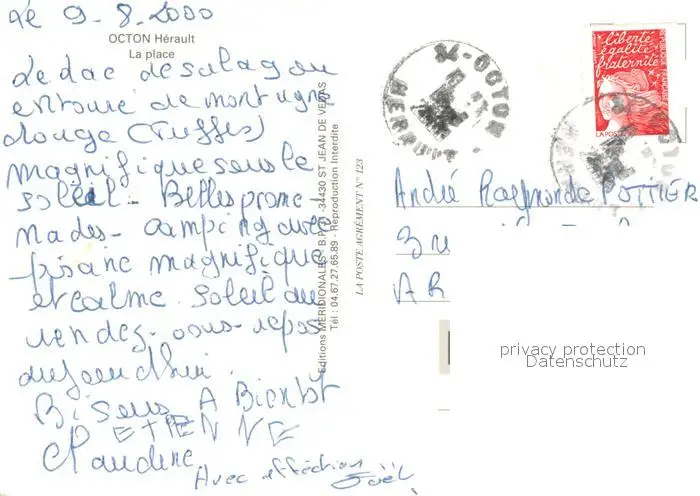 Le 9-8.2000
OCTON Hérault
La place
Le lac de salagou
entouré de montagne
rouge (ruffes)
magnifique sous le
soleil - Belles prome-
nades - camping avec
piscine magnifique
et calme. Soleil au
rendez-vous - repos
aujourd'hui.
Bisous A Bientôt
ETIENNE
Claudine
Avec affection Joël
Editions MERIDIONALES - B.P. 34430 ST JEAN DE VEDAS
Tél : 04.67.27.65.89 - Reproduction Interdite
LA POSTE AGRÉMENT N° 123
34-OCTON
HERAULT
liberté
égalité
fraternité
LA POSTE
André Raymonde POTTIER
3
AR
privacy protection
Datenschutz